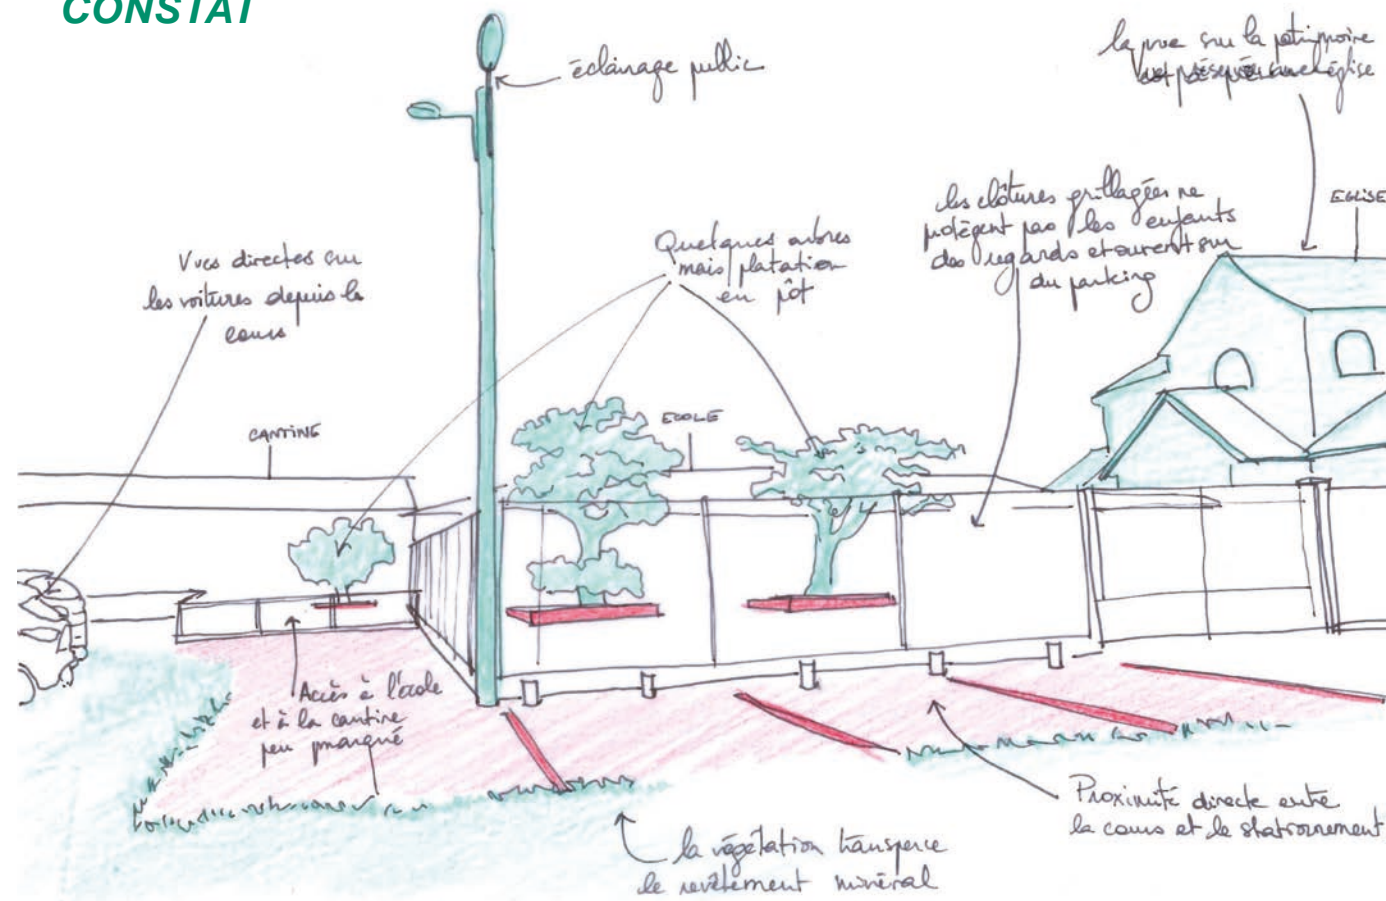 CONSTAT
éclairage public
la vue sur la patrimoine
église
EGLISE
les clôtures grillagées ne
protègent pas les enfants
des regards et ouvrent sur
du parking
Quelques arbres
mais platation
en pôt
Vues directes sur
les voitures depuis la
cours
CANTINE
ECOLE
Accès à l'école
et à la cantine
peu marqué
Proximité directe entre
la cours et le stationnement
la végétation transperce
le revêtement minéral